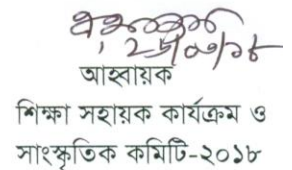 আহবায়ক
শিক্ষা সহায়ক কার্যক্রম ও
সাংস্কৃতিক কমিটি-২০১৮